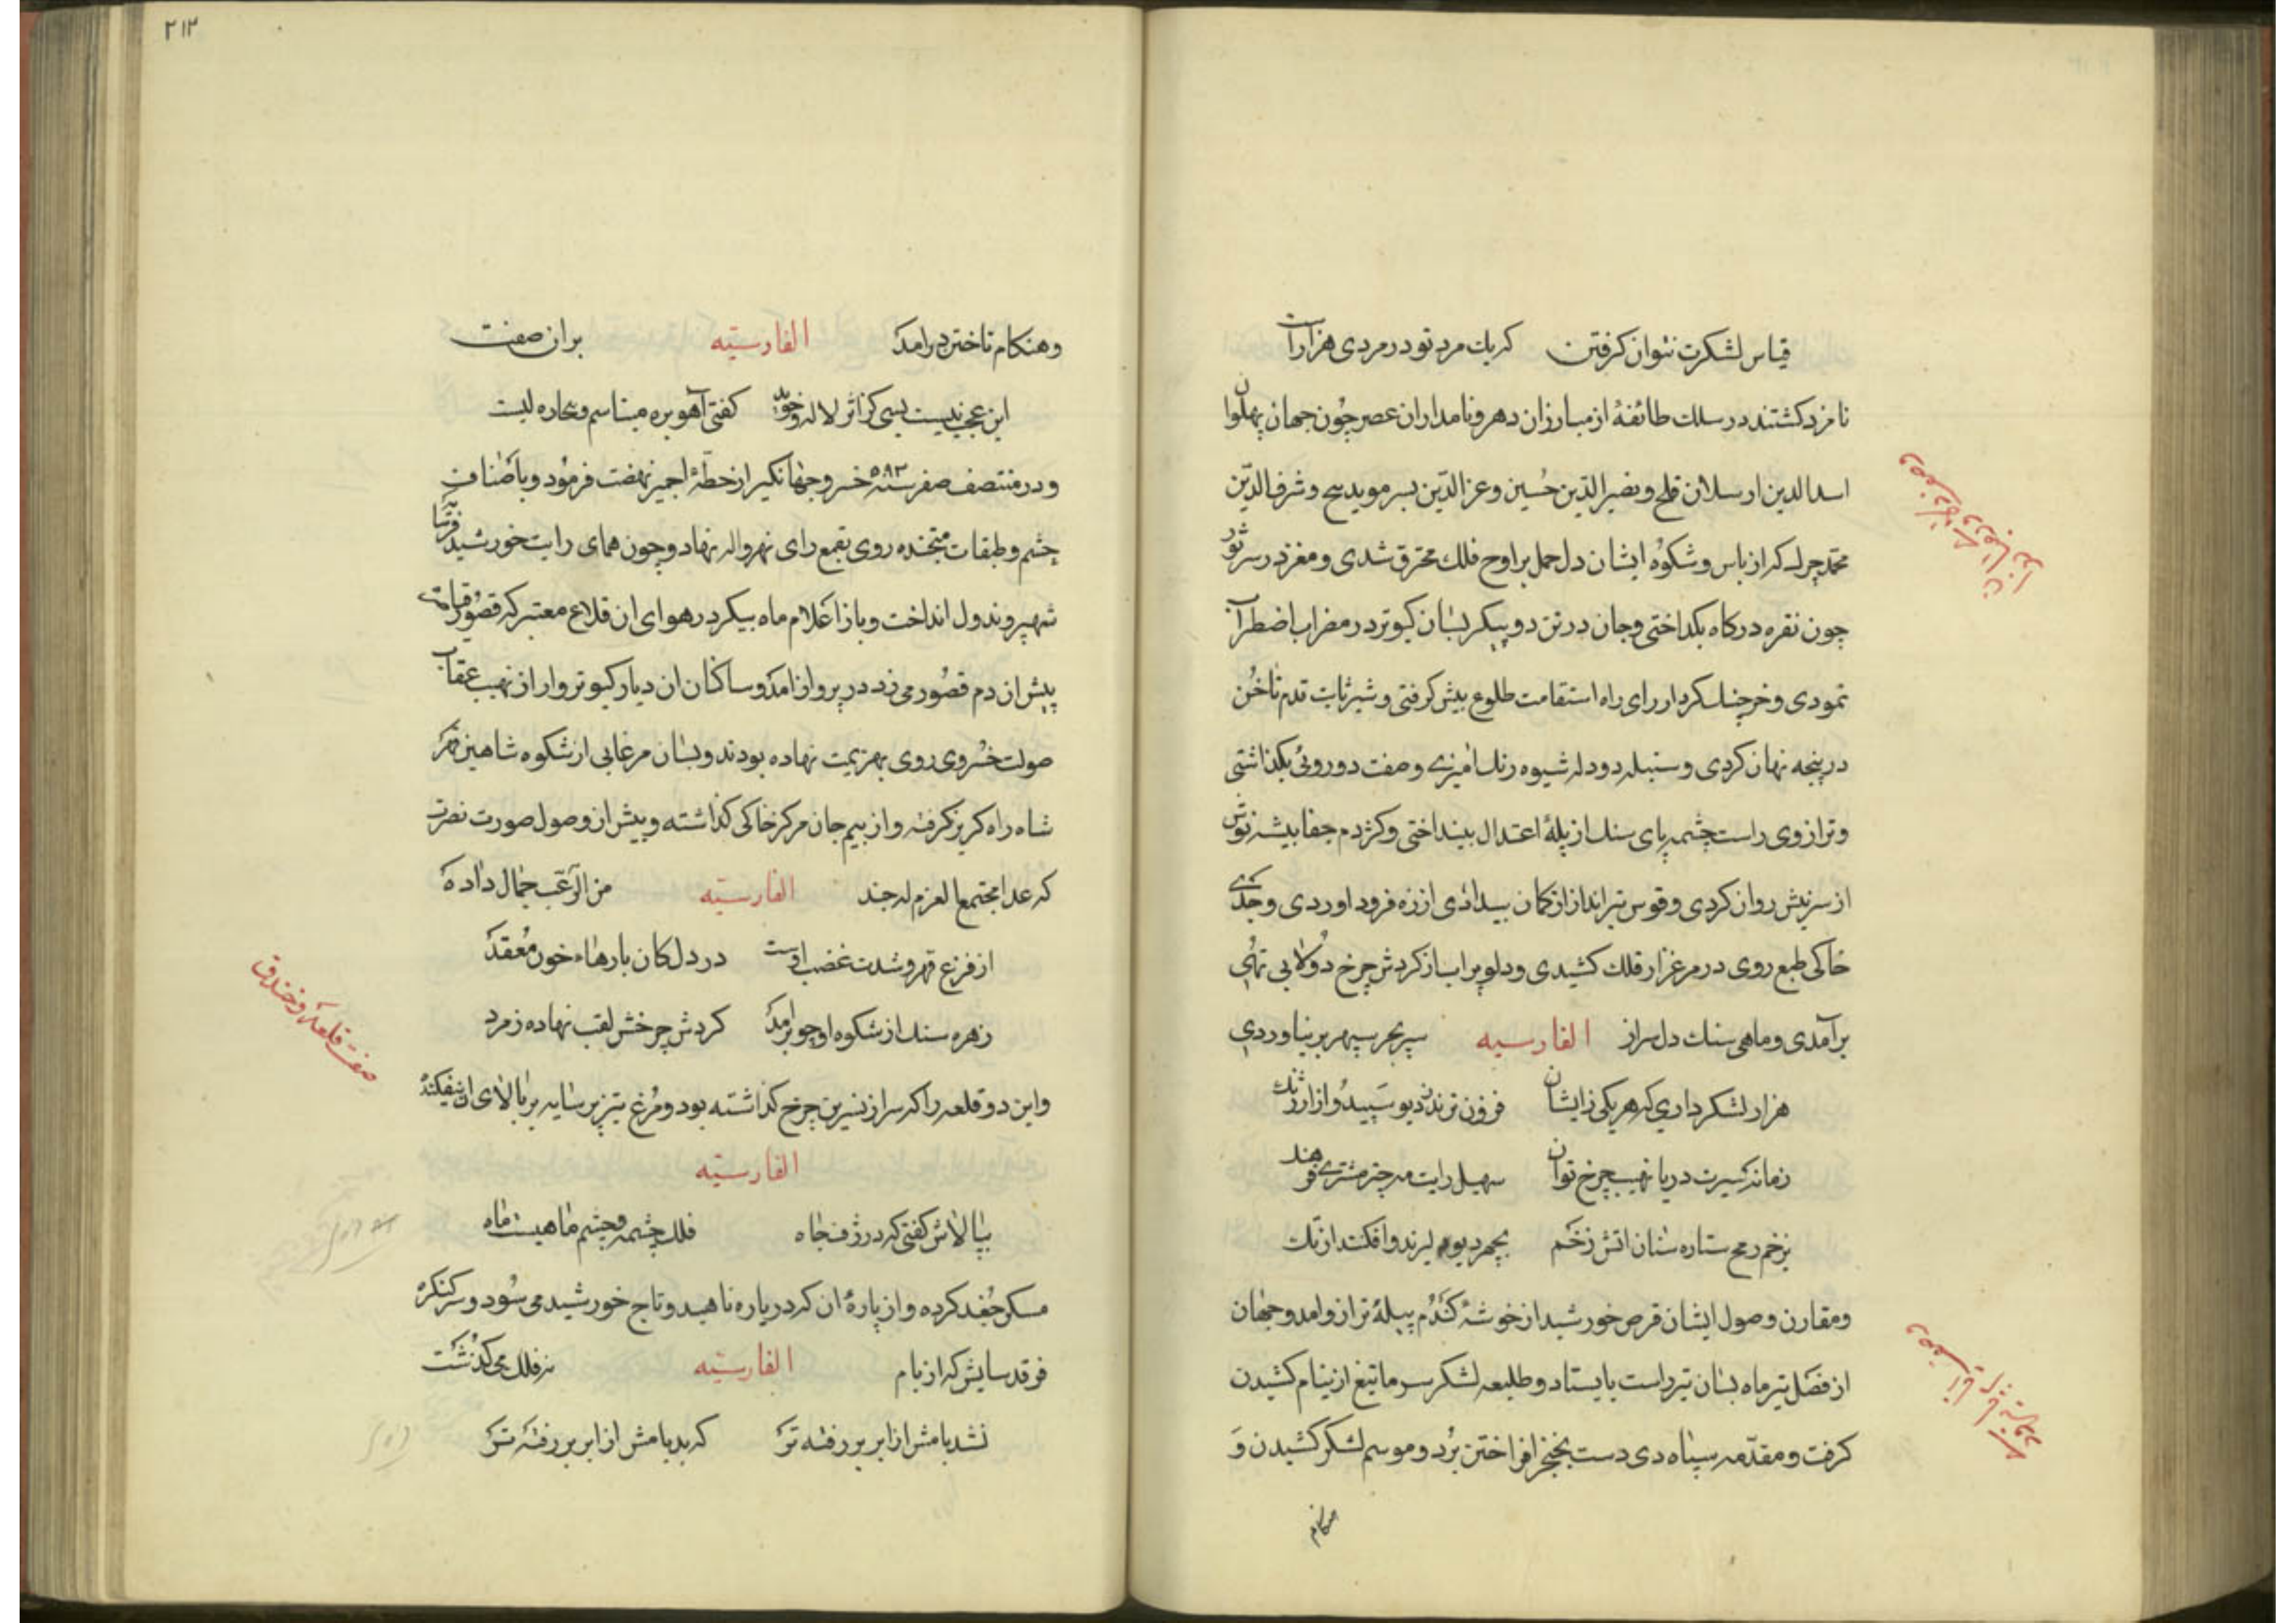 قیاس لشکرت نتوان کرفتن که یك مرد تو در مردی هزاراست
نامزد کشتند در سلك طائفهٔ از مبارزان دهر و نامداران عصر چون جهان پهلوان
اسدالدین ارسلان قلج و نصیرالدین حسین و عزالدین بسر موید و شرف الدین
محمد چرك که از باس و شکوه ایشان دل حمل بر اوج فلك محترق شدی و مغز در سر ثور
چون نقره در کاه بکداختی و جان در تن دو پیکر بسان کبوتر در مضراب اضطراب
نمودی و خرچنك کردار رای راه استقامت طلوع پیش کرفتی و شیر ثابت قدم ناخن
در پنجه نهان کردی و سنبله دودله شیوه رنك امیزی و صفت دوروئی بکذاشتی
و ترازوی راست چشمه پای سنك از پلهٔ اعتدال بینداختی و کژدم جفا پیشه نوش
از سر نیش روان کردی و قوس تیرانداز از کمان بیدادی از زه فرود اوردی و جدی
خاکی طبع روی در مرغزار فلك کشیدی و دلو پراب از کردش چرخ دولابی تهی
برآمدی و ماهی سنك دل سر از الفارسیه سپر بحر سپهر بر نیاوردی
هزار لشکر داری که هر یکی زایشان فزون ترند ز دیو سپید و از ارژنك
زمانه سیرت دریا نهیب چرخ توان سهیل رایت مه چتر مشتری فرهند
بزخم رمح ستاره سنان اتش زخم
و مقارن وصول ایشان قرص خورشید از خوشهٔ کندم بپلهٔ ترازو امد و جهان
از فصل تیر ماه بسان تیر راست بایستاد و طلیعه لشکر سرما تیغ از نیام کشیدن
کرفت و مقدمه سپاه دی دست بخنجر افراختن برد و موسم لشکر کشیدن و
هنکام
۲۱۲
و هنکام تاختن درامد الفارسیّه بران صفت
این عجب نیست بسی کز اثر لاله و خوید کفتی آهو بره میناسم و بیجاده لبست
و در منتصف صفر سنه ۵۹۳ خسرو جهانکیر از خطهٔ اجمیر نهضت فرمود و باصناف
حشم و طبقات متجنده روی بقمع رای نهرواله نهاد و چون همای رایت خورشید فرسا
شهپر و ندول انداخت و باز اعلام ماه پیکر در هوای ان قلاع معتبر که قصور
پیش ان دم قصور می زد در پرواز امد و ساکنان ان دیار کبوتروار از نهیب عقاب
صولت خسروی روی بهزیمت نهاده بودند و بسان مرغابی از شکوه شاهین قهر
شاه راه کریز کرفته و از بیم جان مرکز خاکی کذاشته و پیش از وصول صورت نصرت
که غدا مجتمعا لعزم له جند الفارسیّه من الرعب جمال داده
از فزع قهر و شدت غضب اوست در دل کان بارهاء خون معقد
زهره سنك از شکوه او چو برامد کردش چرخش لقب نهاده زمرد
و این دو قلعه را که سر از نسرین چرخ کذاشته بود و مرغ تیزپر سایه بر بالای ان نیفکنده
الفارسیّه
ببالاش کفتی که در ژرف چاه فلك چشمه و چشم ماهیست ماه
مسکن جغد کرده و از پارهٔ ان که در یاره ناهید و تاج خورشید می سود و سر کنکره
فرقد سایش که از بام الفارسیّه نه فلك می کذشت
نشد بامش از ابر بر رفته تر که بد بامش از ابر بر رفته تر
صفت قلعه و خندق